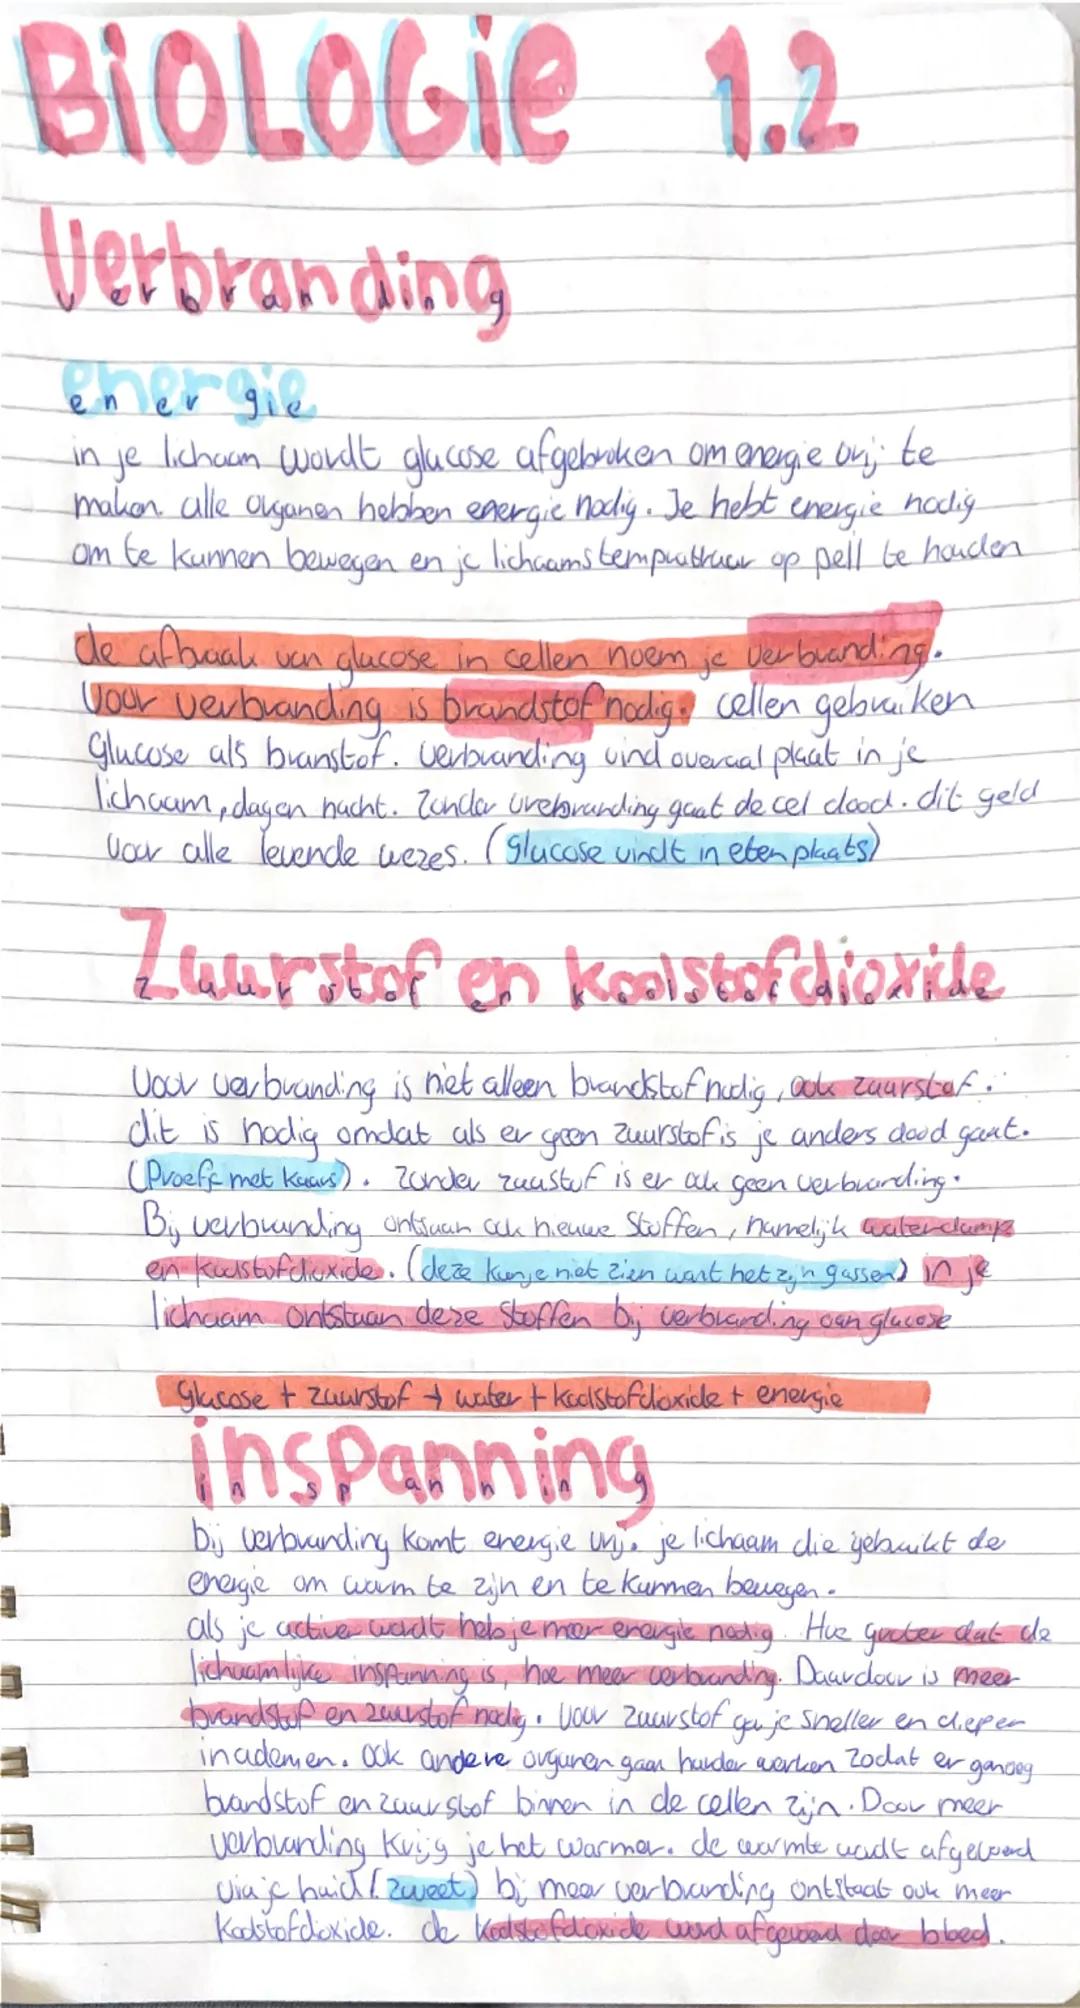 BiOLOGie 1.2
Verbranding
energie
in je lichaam wordt glucose afgebroken om energie vrij te
maken. alle organen hebben energie nodig. Je hebt energie nodig
om te kunnen bewegen en je lichaams op peil te houden
de afbraak van glucose in cellen noem je verbranding.
Voor verbranding is brandstof nodig. cellen gebruiken
Glucose als branstof. verbranding vind overaal plaat in je
lichaam, dag en nacht. Zonder vrebranding gaat de cel dood. dit geld
voor alle levende wezes. (Glucose vindt in eten plaats)
Zuurstof en koolstofdioxide
Voor verbranding is niet alleen brandstof nodig, ook zuurstof.
dit is nodig omdat als er geen zuurstof is je anders dood gaat.
(Proeff met kaars). Zonder zuustof is er ook geen verbranding.
Bij verbranding ontsaan ook nieuwe Stoffen, namelijk waterdamp
en koolstofdioxide. (deze kun je niet zien want het zijn gassen) in je
lichaam ontstaan deze stoffen bij verbranding van glucose
Glucose + zuurstof → water + koolstofdioxide + energie
inspanning
bij verbranding komt energie vrij. je lichaam die gebruikt de
energie om warm te zijn en te kunnen bewegen.
als je active wordt heb je meer energie nodig. Hoe groter dat de
lichaamlijke inspanning is, hoe meer verbranding. Daardoor is meer
brandstof en zuurstof nodig. Voor zuurstof ga je sneller en dieper
inademen. Ook andere organen gaan harder werken zodat er genoeg
brandstof en zuurstof binnen in de cellen zijn. Door meer
verbranding krijg je het warmer. de warmte wordt afgevoerd
via je huid (zweet) bij meer verbranding ontstaat ook meer
koolstofdioxide. de koolstofdioxide word afgevoerd door bloed.